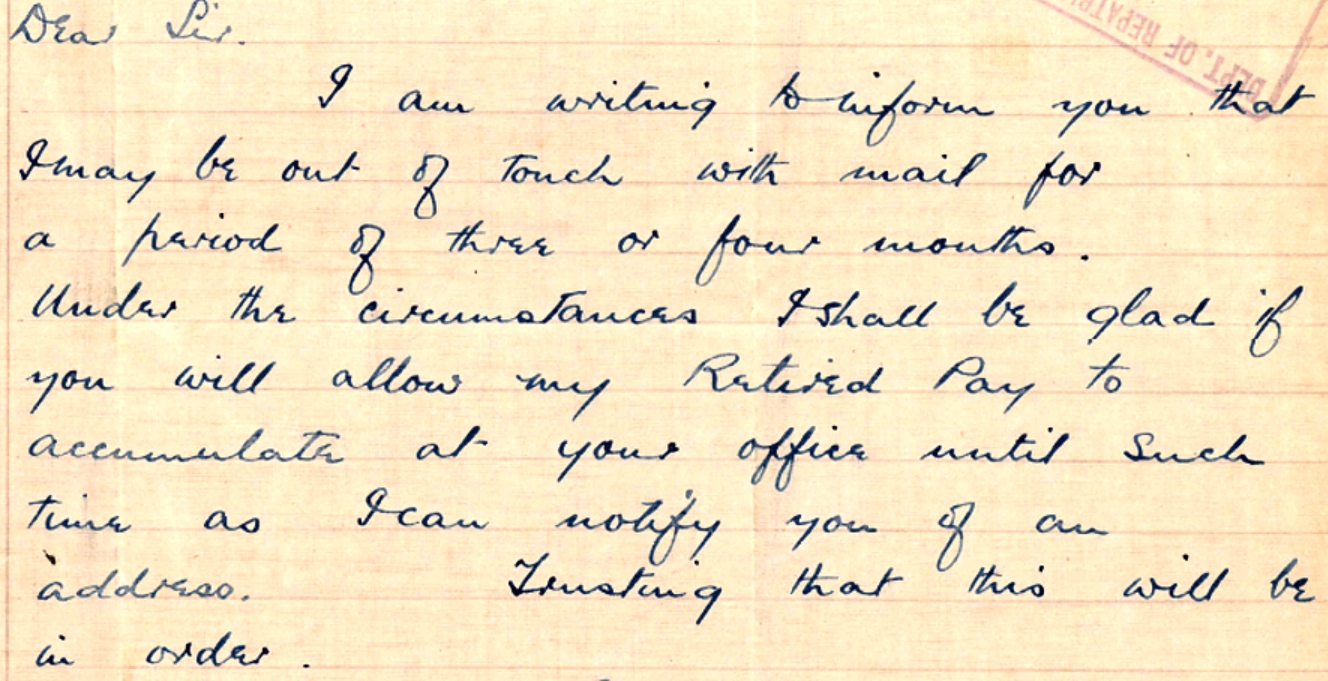 Dear Sir.
DEPT. OF REPATRI
I am writing to inform you that
I may be out of touch with mail for
a period of three or four months.
Under the circumstances I shall be glad if
you will allow my Retired Pay to
accumulate at your office until such
time as I can notify you of an
address. Trusting that this will be
in order.